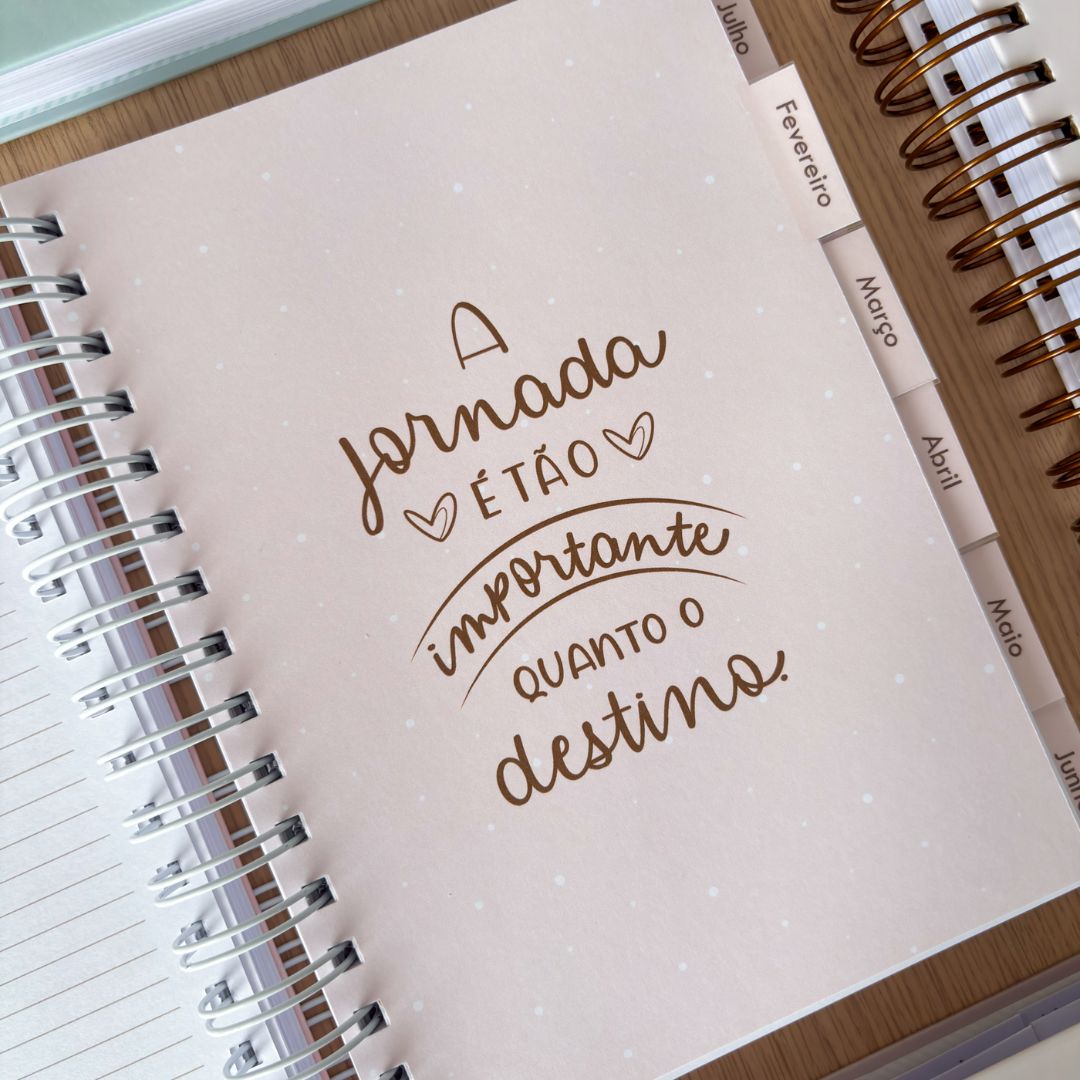 A
jornada
É TÃO
importante
QUANTO O
destino.
Julho
Fevereiro
Março
Abril
Maio